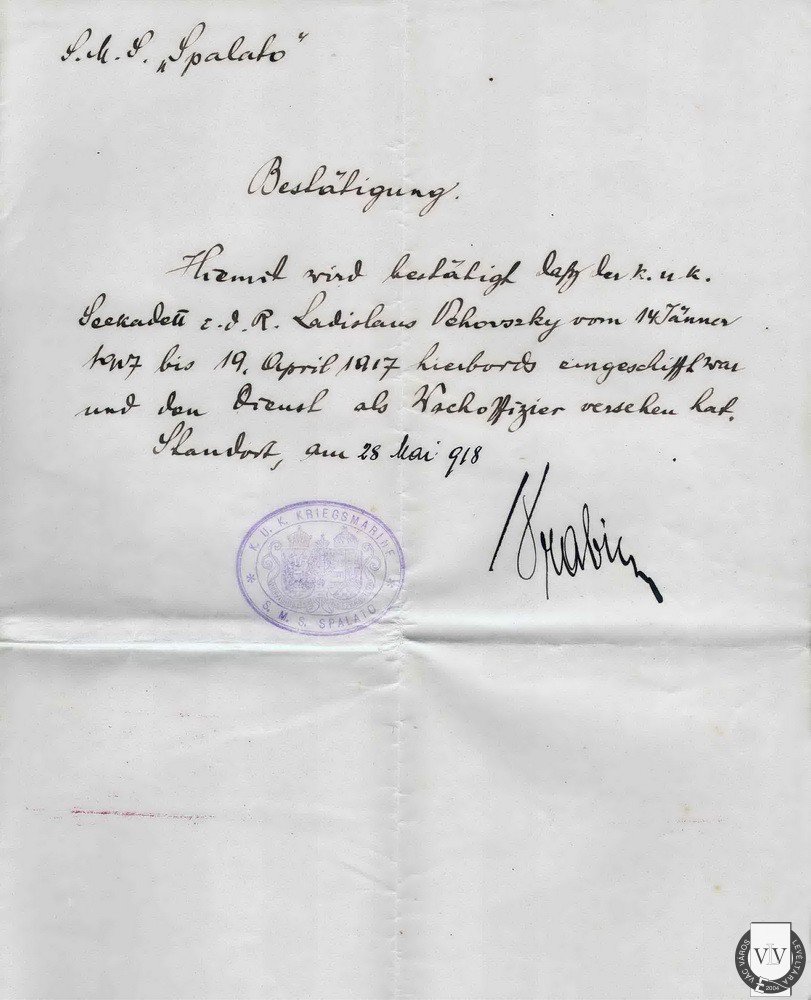 S.M.S. „Spalato"
Bestätigung.
Hiemit wird bestätigt daß der k.u.k.
Seekadett i.d.R. Ladislaus vom 14 Jänner
1917 bis 19. April 1917 hierbords eingeschifft war
und den Dienst als Wachoffizier versehen hat.
Standort, am 28 Mai 918
K. U. K. KRIEGSMARINE
S. M. S. SPALATO
VÁC VÁROS LEVÉLTÁRA
VLV
2004